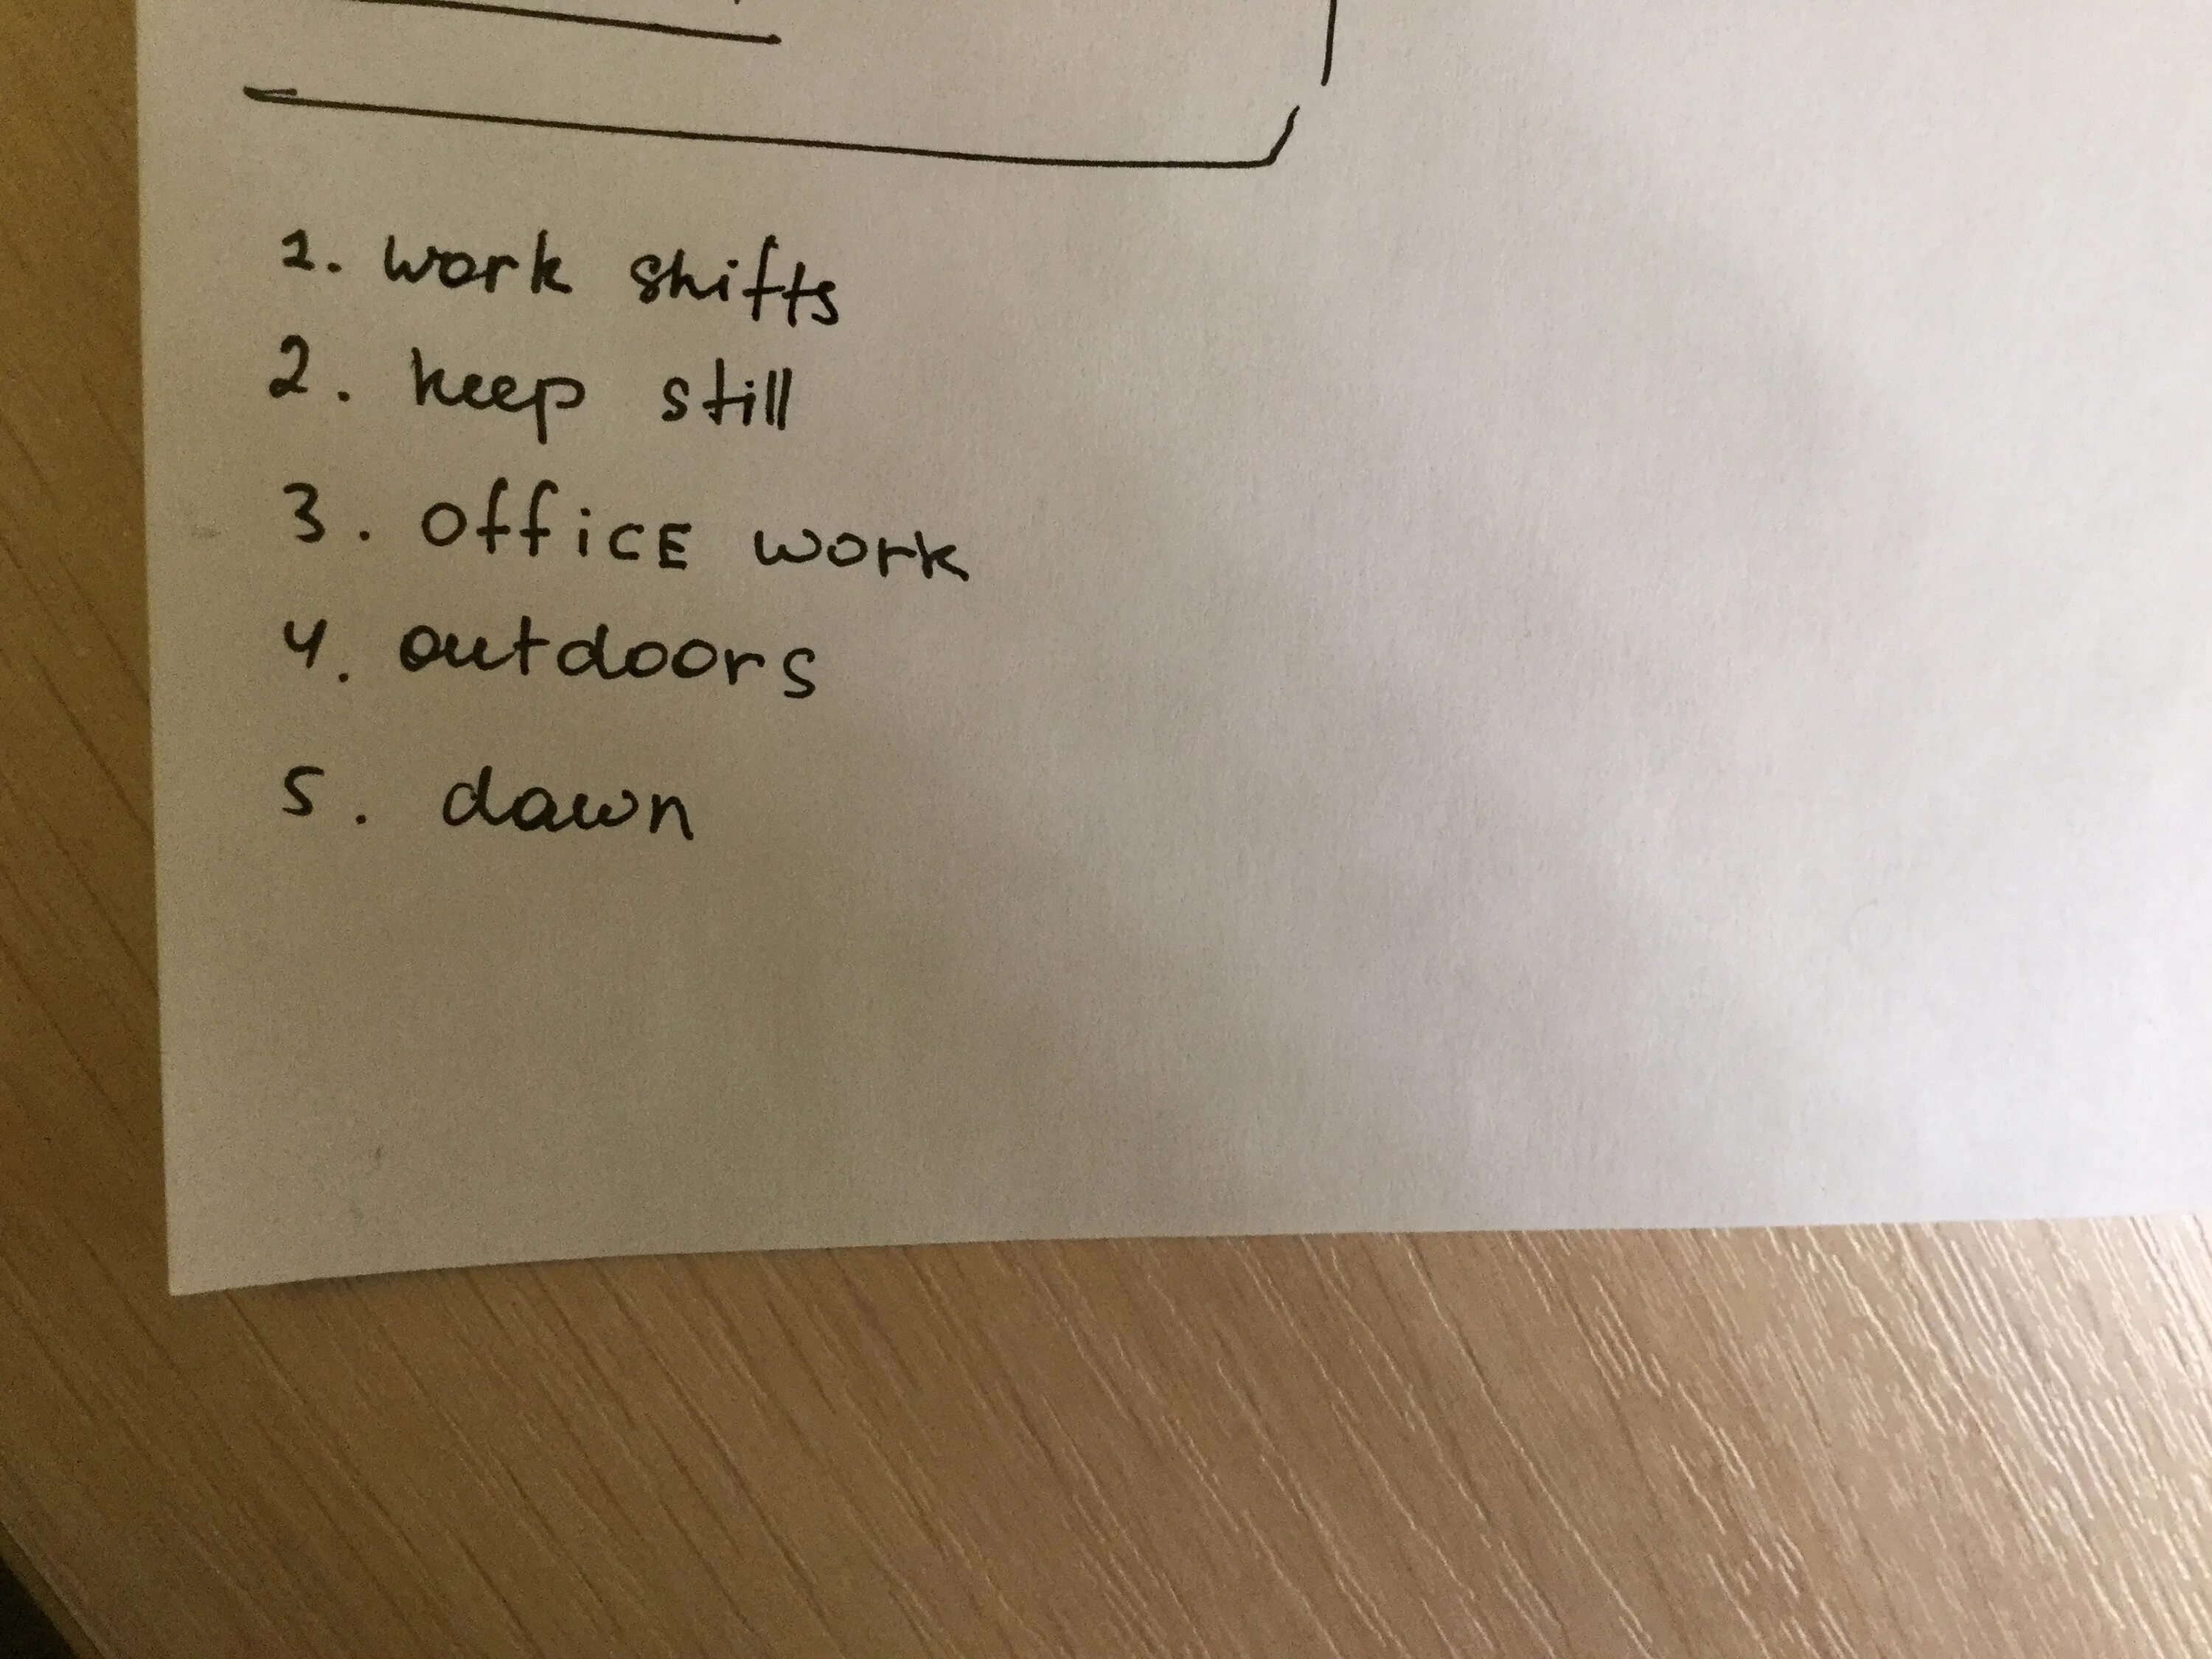 1. work shifts
2. keep still
3. officE work
4. outdoors
5. dawn